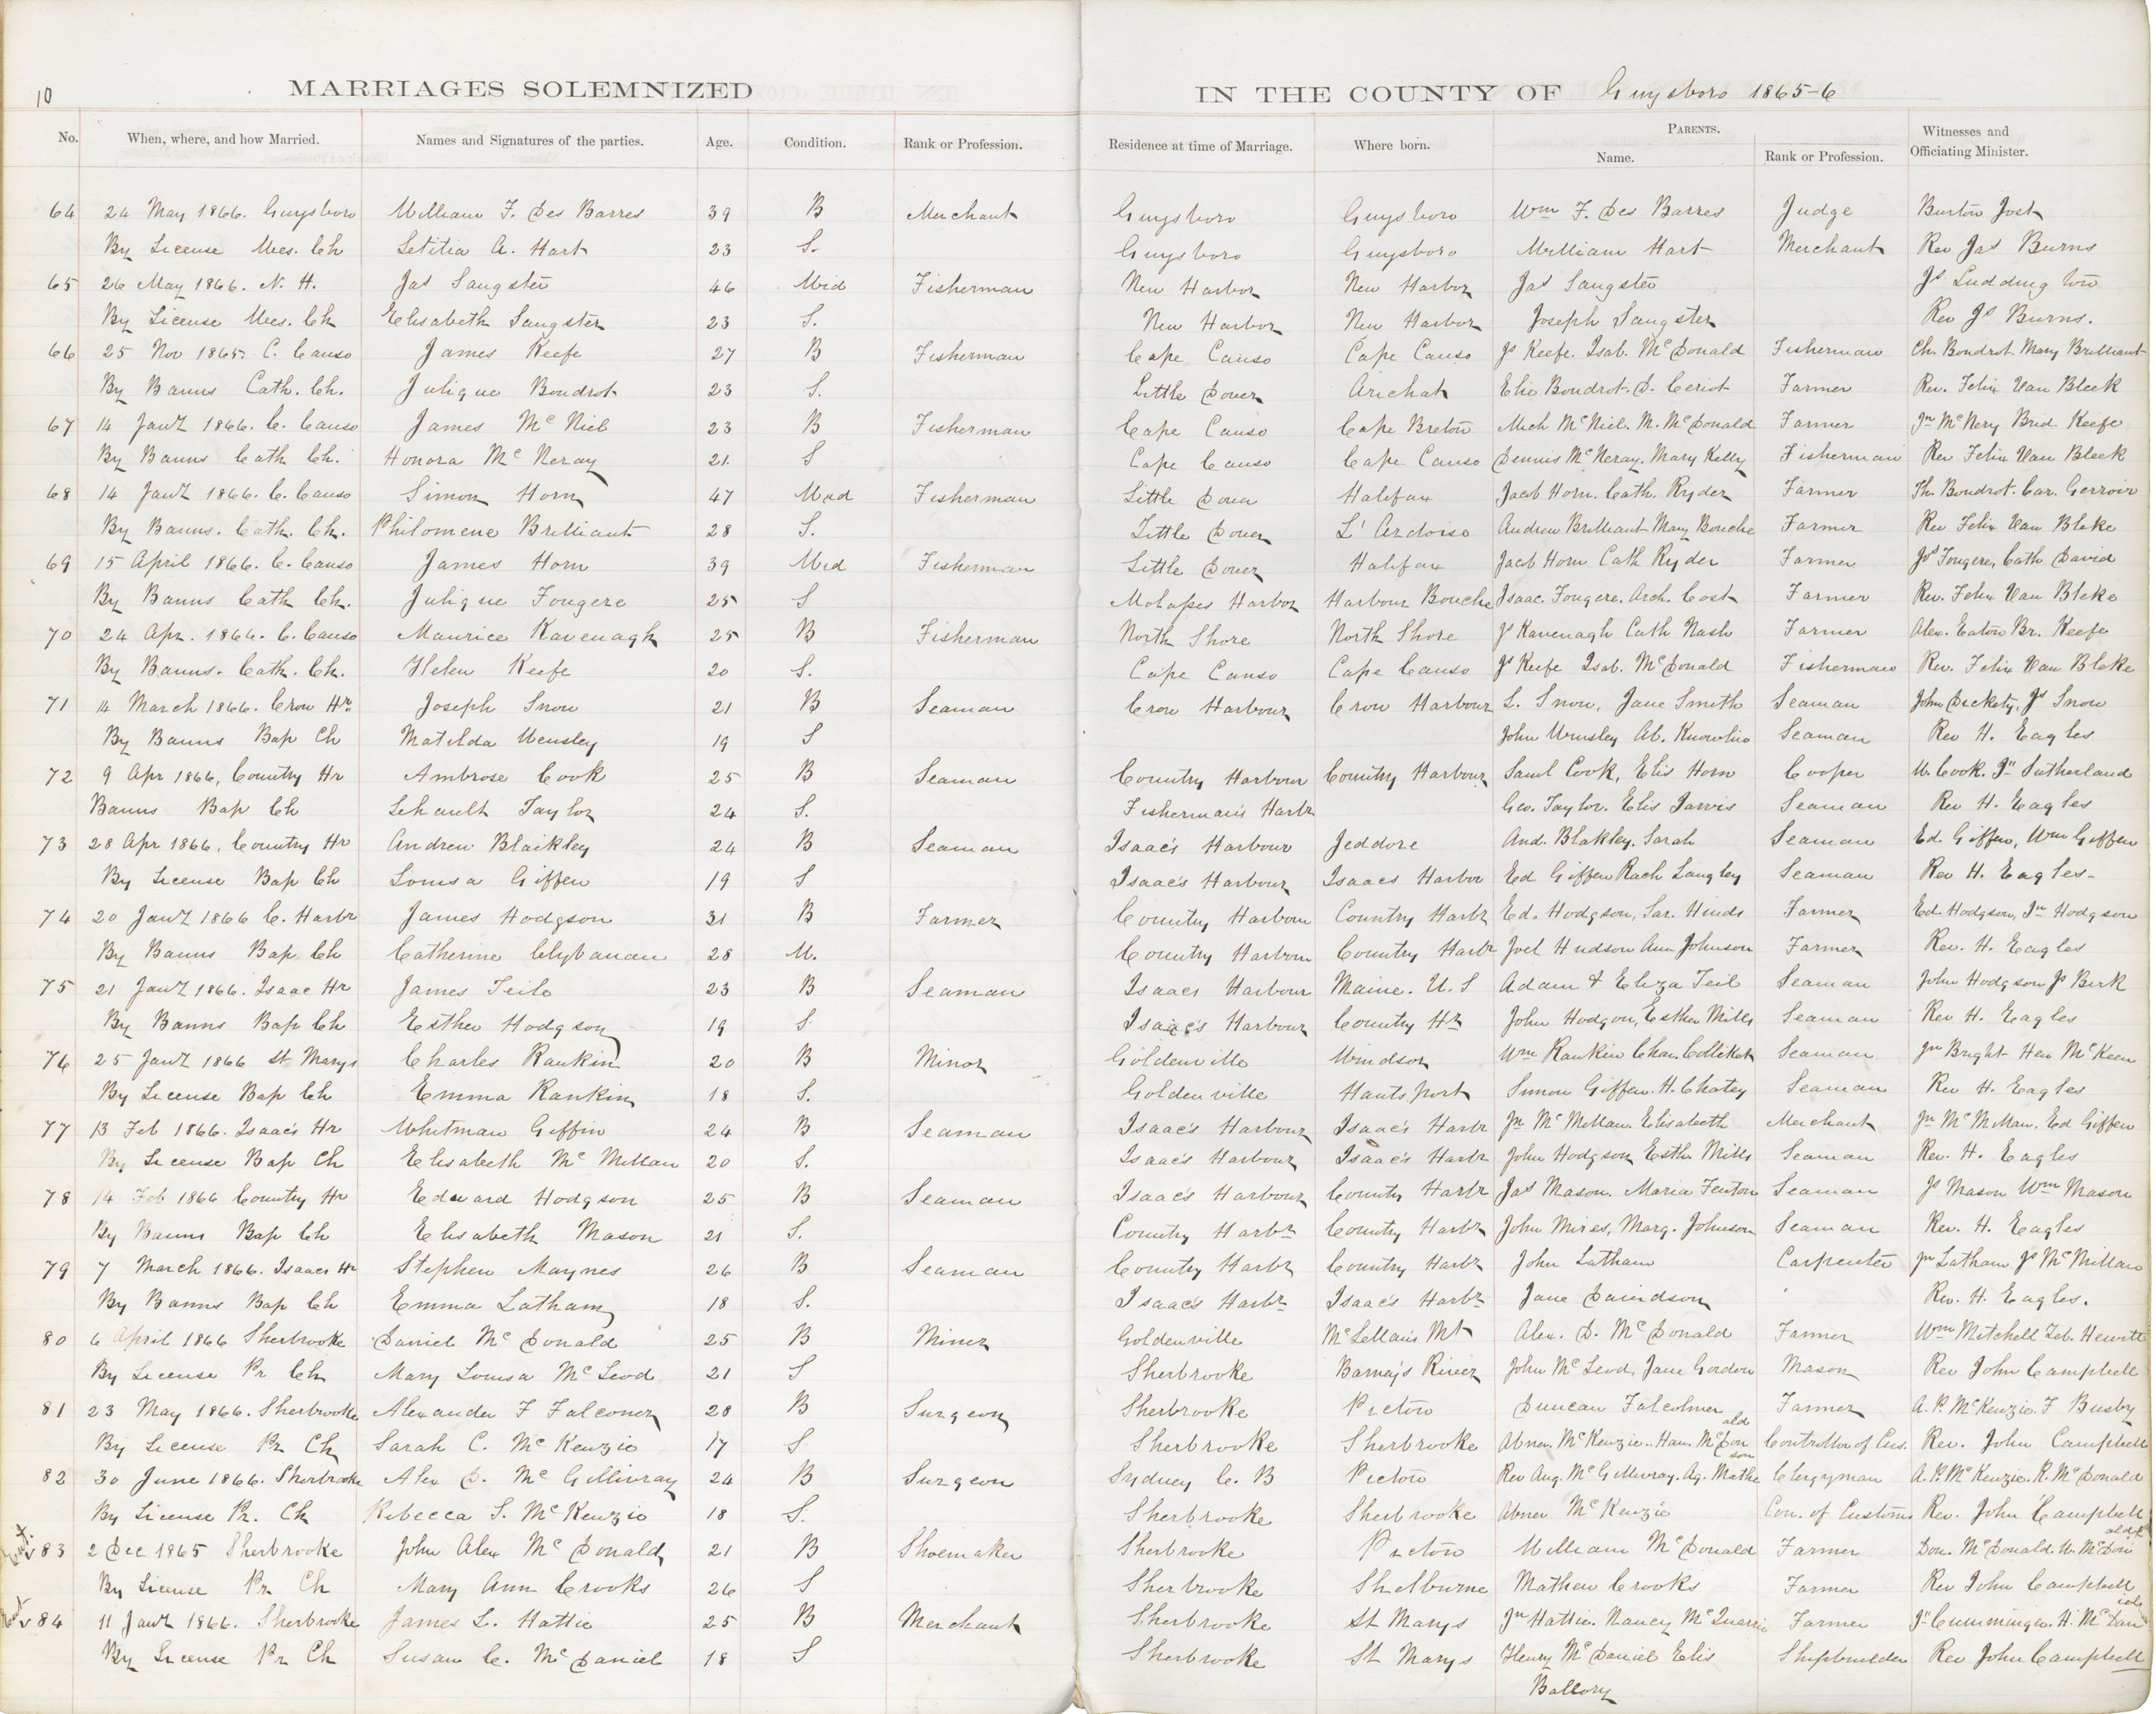 10
MARRIAGES SOLEMNIZED IN THE COUNTY OF Guysboro 1865-6
No. When, where, and how Married. Names and Signatures of the parties. Age. Condition. Rank or Profession. Residence at time of Marriage. Where born. PARENTS. Name. Rank or Profession. Witnesses and Officiating Minister.
64 24 May 1866. Guysboro William F. Des Barres 39 B Merchant Guysboro Guysboro Wm F. Des Barres Judge Burton Jost
By License Wes. Ch Letitia A. Hart 23 S. Guysboro Guysboro William Hart Merchant Rev Jas Burns
65 26 May 1866. N. H. Jas Sangster 46 Wid Fisherman New Harbor New Harbor Jas Sangster Js Luddington
By License Wes. Ch Elisabeth Sangster 23 S. New Harbor New Harbor Joseph Sangster Rev Js Burns.
66 25 Nov 1865. C. Canso James Keefe 27 B Fisherman Cape Canso Cape Canso Js Keefe. Isab. McDonald Fisherman Ch. Boudrot. Mary Brilliant
By Banns Cath. Ch. Julique Boudrot 23 S. Little Dover Arichat Elie Boudrot. D. Ceriot Farmer Rev. Felix Van Bleek
67 14 Jany 1866. C. Canso James McNiel 23 B Fisherman Cape Canso Cape Breton Mich McNiel. M. McDonald Farmer Jn McNery Brid. Keefe
By Banns Cath Ch. Honora McNeray 21. S Cape Canso Cape Canso Dennis McNeray. Mary Kelly Fisherman Rev Felix Van Bleek
68 14 Jany 1866. C. Canso Simon Horn 47 Wid Fisherman Little Dover Halifax Jacob Horn. Cath. Ryder Farmer Th. Boudrot. Car. Gerroir
By Banns. Cath. Ch. Philomene Brilliant 28 S. Little Dover L'Ardoise Andrew Brilliant Mary Bouche Farmer Rev Felix Van Bleke
69 15 April 1866. C. Canso James Horn 39 Wid Fisherman Little Dover Halifax Jacob Horn Cath Ryder Farmer Js Fougere, Cath David
By Banns Cath Ch. Julique Fougere 25 S Molasses Harbor Harbour Bouche Isaac. Fougere. Arch. Cost Farmer Rev. Felix Van Bleke
70 24 Apr. 1866. C. Canso Maurice Kavenagh 25 B Fisherman North Shore North Shore Js Kavenagh Cath Nash Farmer Alex. Eaton Br. Keefe
By Banns. Cath. Ch. Helen Keefe 20 S. Cape Canso Cape Canso Js Keefe Isab. McDonald Fisherman Rev. Felix Van Bleke
71 14 March 1866. Crow Hr. Joseph Snow 21 B Seaman Crow Harbour Crow Harbour S. Snow, Jane Smith Seaman John Dickety, Js Snow
By Banns Bap Ch Matilda Uensley 19 S John Umsley Ab. Knowlin Seaman Rev H. Eagles
72 9 Apr 1866, Country Hr Ambrose Cook 25 B Seaman Country Harbour Country Harbour Saml Cook, Elis Horn Cooper W. Cook. Jn Sutherland
Banns Bap Ch Schault Taylor 24 S. Fisherman's Harbr Geo. Taylor. Elis Jarvis Seaman Rev H. Eagles
73 28 Apr 1866, Country Hr Andrew Blaikley 24 B Seaman Isaac's Harbour Jeddore And. Blakley. Sarah Seaman Ed. Giffen, Wm Giffen
By License Bap Ch Louisa Giffen 19 S Isaac's Harbour Isaacs Harbor Ed Giffen Rach Langley Seaman Rev H. Eagles-
74 20 Jany 1866 C. Harbr James Hodgson 31 B Farmer Country Harbour Country Harbr Ed. Hodgson, Sar. Hinds Farmer Ed. Hodgson, Jn Hodgson
By Banns Bap Ch Catherine Clybanan 28 W. Country Harbour Country Harbr Joel Hudson Ann Johnson Farmer Rev. H. Eagles
75 21 Jany 1866. Isaac Hr James Teile 23 B Seaman Isaacs Harbour Maine. U.S Adam & Eliza Teil Seaman John Hodgson Js Birk
By Banns Bap Ch Esther Hodgson 19 S. Isaac's Harbour Country Hr John Hodgon, Esther Mills Seaman Rev H. Eagles
76 25 Jany 1866 St Marys Charles Rankin 20 B Minor Goldenville Windsor Wm Rankin Char. Seaman Jn Bright Hen McKeen
By License Bap Ch Emma Rankin 18 S. Goldenville Hantsport Simon Giffen. H. Chatey Seaman Rev H. Eagles
77 13 Feb 1866. Isaac's Hr Whitman Giffin 24 B Seaman Isaac's Harbour Isaac's Harbr Jn McMillan. Elisabeth Merchant Jn McMillan. Ed Giffen
By License Bap Ch Elisabeth McMillan 20 S. Isaac's Harbour Isaac's Harbr John Hodgson Esth. Mills Seaman Rev. H. Eagles
78 14 Feb 1866 Country Hr Edward Hodgson 25 B Seaman Isaac's Harbour Country Harbr Jas Mason. Maria Fenton Seaman Js Mason Wm Mason
By Banns Bap Ch Elisabeth Mason 21 S. Country Harbr Country Harbr John Mires, Marg. Johnson Seaman Rev. H. Eagles
79 7 March 1866. Isaacs Hr Stephen Maynes 26 B Seaman Country Harbr Country Harbr John Latham Carpenter Jn Latham Js McMillan
By Banns Bap Ch Emma Latham 18 S. Isaac's Harbr Isaac's Harbr Jane Davidson Rev. H. Eagles.
80 6 April 1866 Sherbrooke Daniel McDonald 25 B Miner Goldenville McLellan's Mt Alex. D. McDonald Farmer Wm Mitchell Zeb. Hewitt
By License Pr Ch Mary Louisa McLeod 21 S Sherbrooke Barney's River John McLeod, Jane Gordon Mason Rev John Campbell
81 23 May 1866. Sherbrooke Alexander F Falconer 28 B Surgeon Sherbrooke Pictou Duncan Falcolmer Farmer A. P. McKenzie. F Busby
By License Pr Ch Sarah C. McKenzie 17 S Sherbrooke Sherbrooke Abner. McKenzie.. Han. McDonald Controllor of Cus. Rev. John Campbell
82 30 June 1866. Sherbrooke Alex D. McGillivray 24 B Surgeon Sydney C. B Pictou Rev Aug. McGillivray. Ag. Matheson Clergyman A. P. McKenzie. R. McDonald
By License Pr. Ch Rebecca S. McKenzie 18 S. Sherbrooke Sherbrooke Abner McKenzie Con. of Customs Rev. John Campbell
83 2 Dec 1865 Sherbrooke John Alex McDonald 21 B Shoemaker Sherbrooke Pictou William McDonald Farmer Don. McDonald. W. McDonald
By License Pr. Ch Mary Ann Crooks 26 S Sherbrooke Shelburne Mathew Crooks Farmer Rev John Campbell
84 11 Jany 1866. Sherbrooke James L. Hattie 25 B Merchant Sherbrooke St Marys Jn Hattie. Nancy McQuarrie Farmer Jn Cumminger. H. McDaniel
By License Pr Ch Susan C. McDaniel 18 S Sherbrooke St Marys Henry McDaniel Elis Shipbuilder Rev John Campbell
Ballory